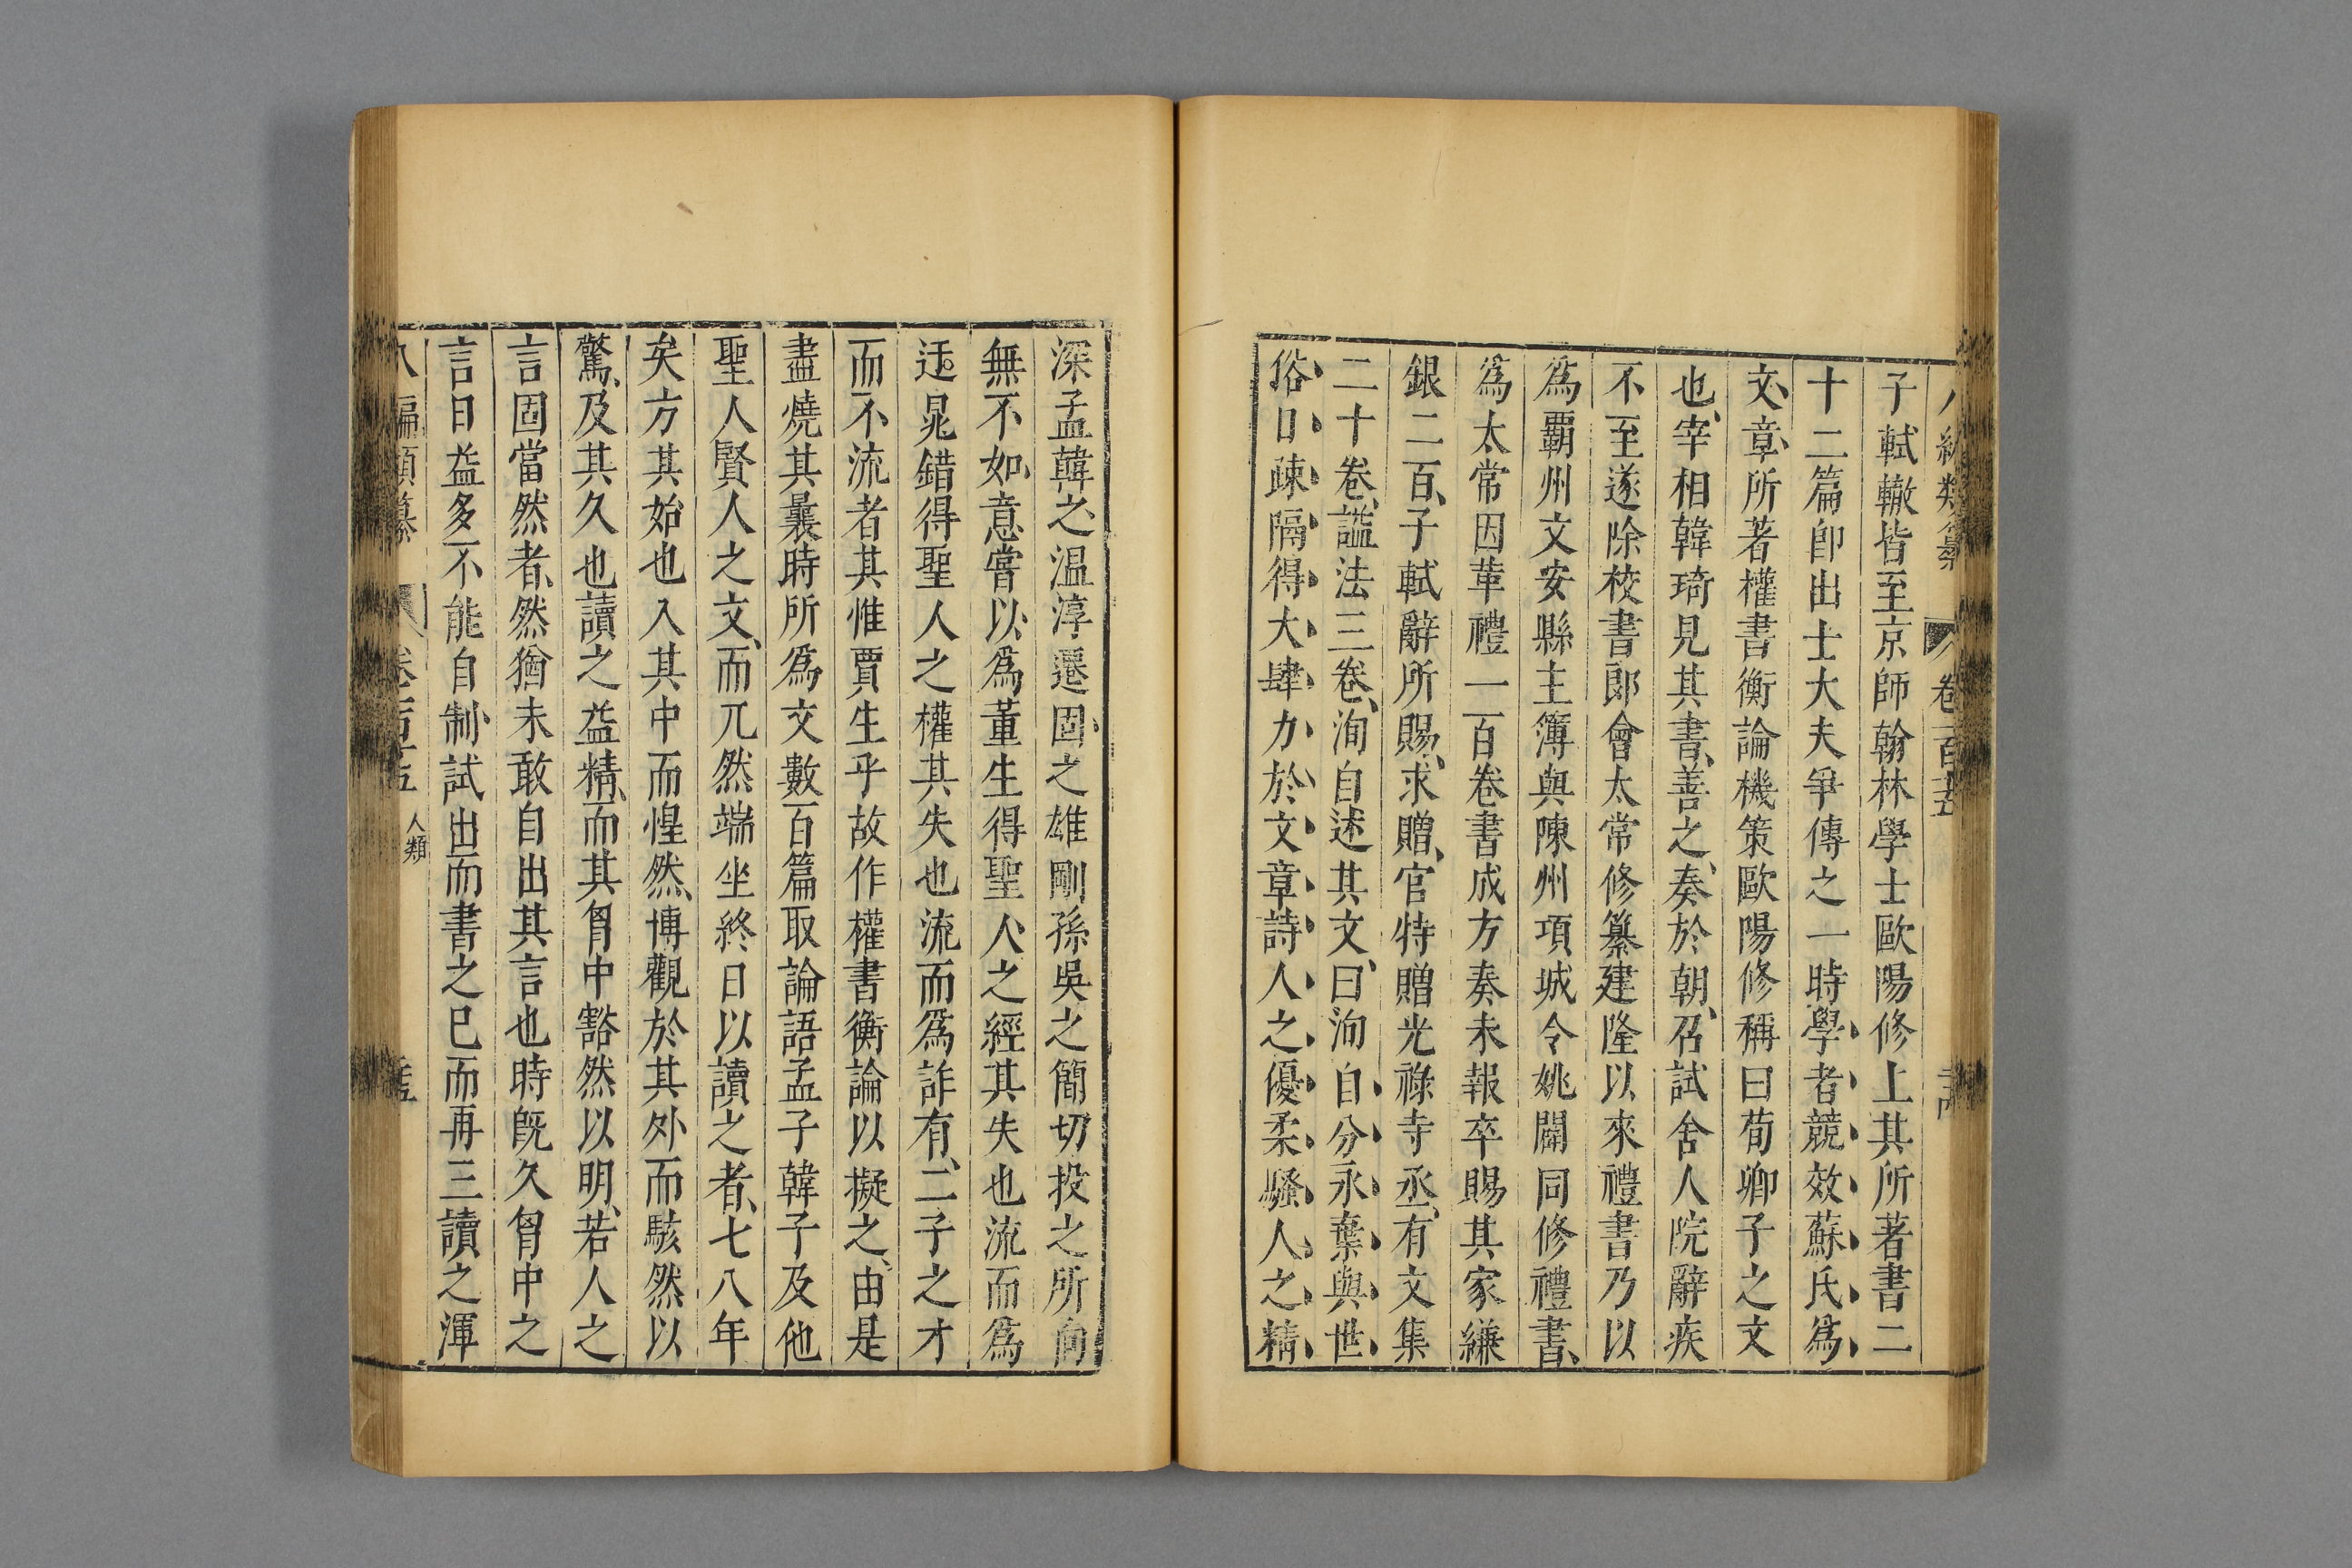 八編類纂 卷一百十五
子軾轍皆至京師翰林學士歐陽修上其所著書二
十二篇卽出士大夫爭傳之一時學者競效蘇氏爲
文章所著權書衡論機策歐陽修稱曰荀卿子之文
也宰相韓琦見其書善之奏於朝召試舍人院辭疾
不至遂除校書郎會太常修纂建隆以來禮書乃以
爲霸州文安縣主簿與陳州項城令姚闢同修禮書
爲太常因革禮一百卷書成方奏未報卒賜其家縑
銀二百子軾辭所賜求贈官特贈光祿寺丞有文集
二十卷謚法三卷洵自述其文曰洵自分永棄與世
俗日疎隔得大肆力於文章詩人之優柔騷人之精
深孟韓之温淳遷固之雄剛孫吳之簡切投之所向
無不如意嘗以爲董生得聖人之經其失也流而爲
迂晁錯得聖人之權其失也流而爲詐有二子之才
而不流者其惟賈生乎故作權書衡論以擬之由是
盡燒其曩時所爲文數百篇取論語孟子韓子及他
聖人賢人之文而兀然端坐終日以讀之者七八年
矣方其始也入其中而惶然博觀於其外而駭然以
驚及其久也讀之益精而其胷中豁然以明若人之
言固當然者然猶未敢自出其言也時旣久胷中之
言日益多不能自制試出而書之已而再三讀之渾
八編類纂 卷一百十五 人類